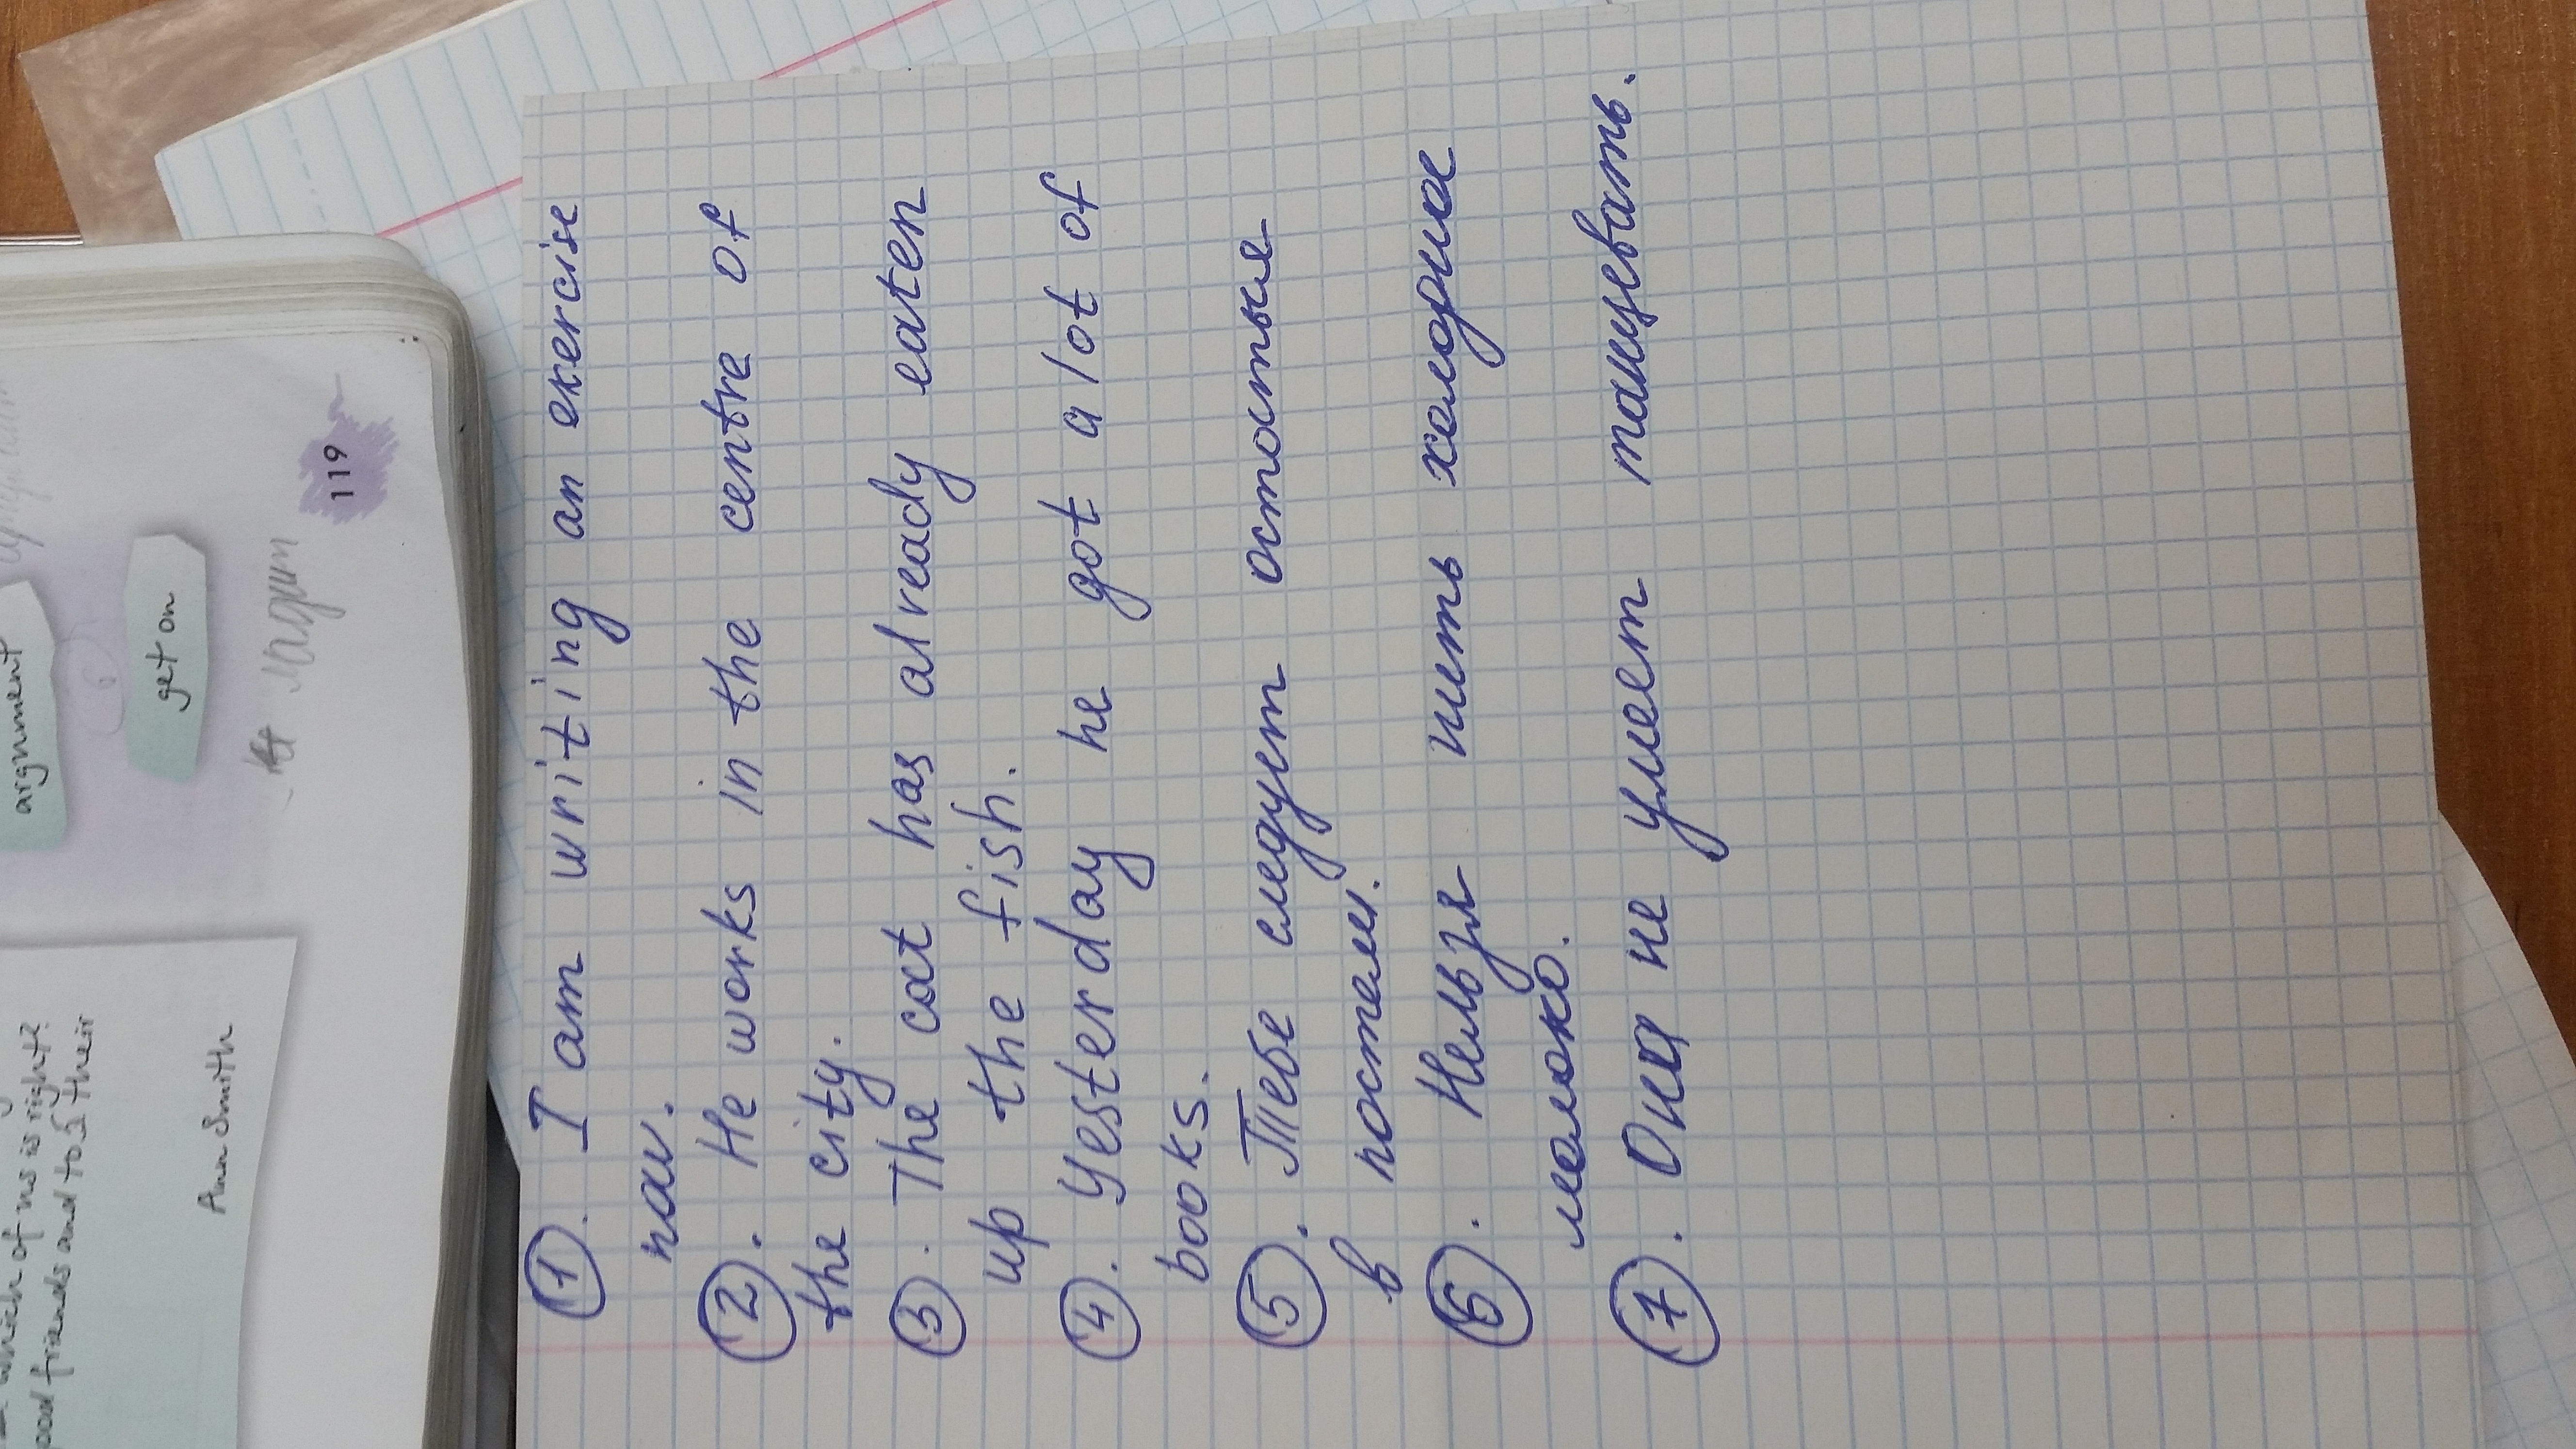 which of us is right?
good friends and to their
Ann Smith
argument
get on
119
① . I am writing an exercise
now.
② . He works in the centre of
the city.
③ . The cat has already eaten
up the fish.
④ . Yesterday he got a lot of
books.
⑤ . Тебе следует остаться
в постели.
⑥ . Нельзя пить холодное
молоко.
⑦ . Она не умеет танцевать.